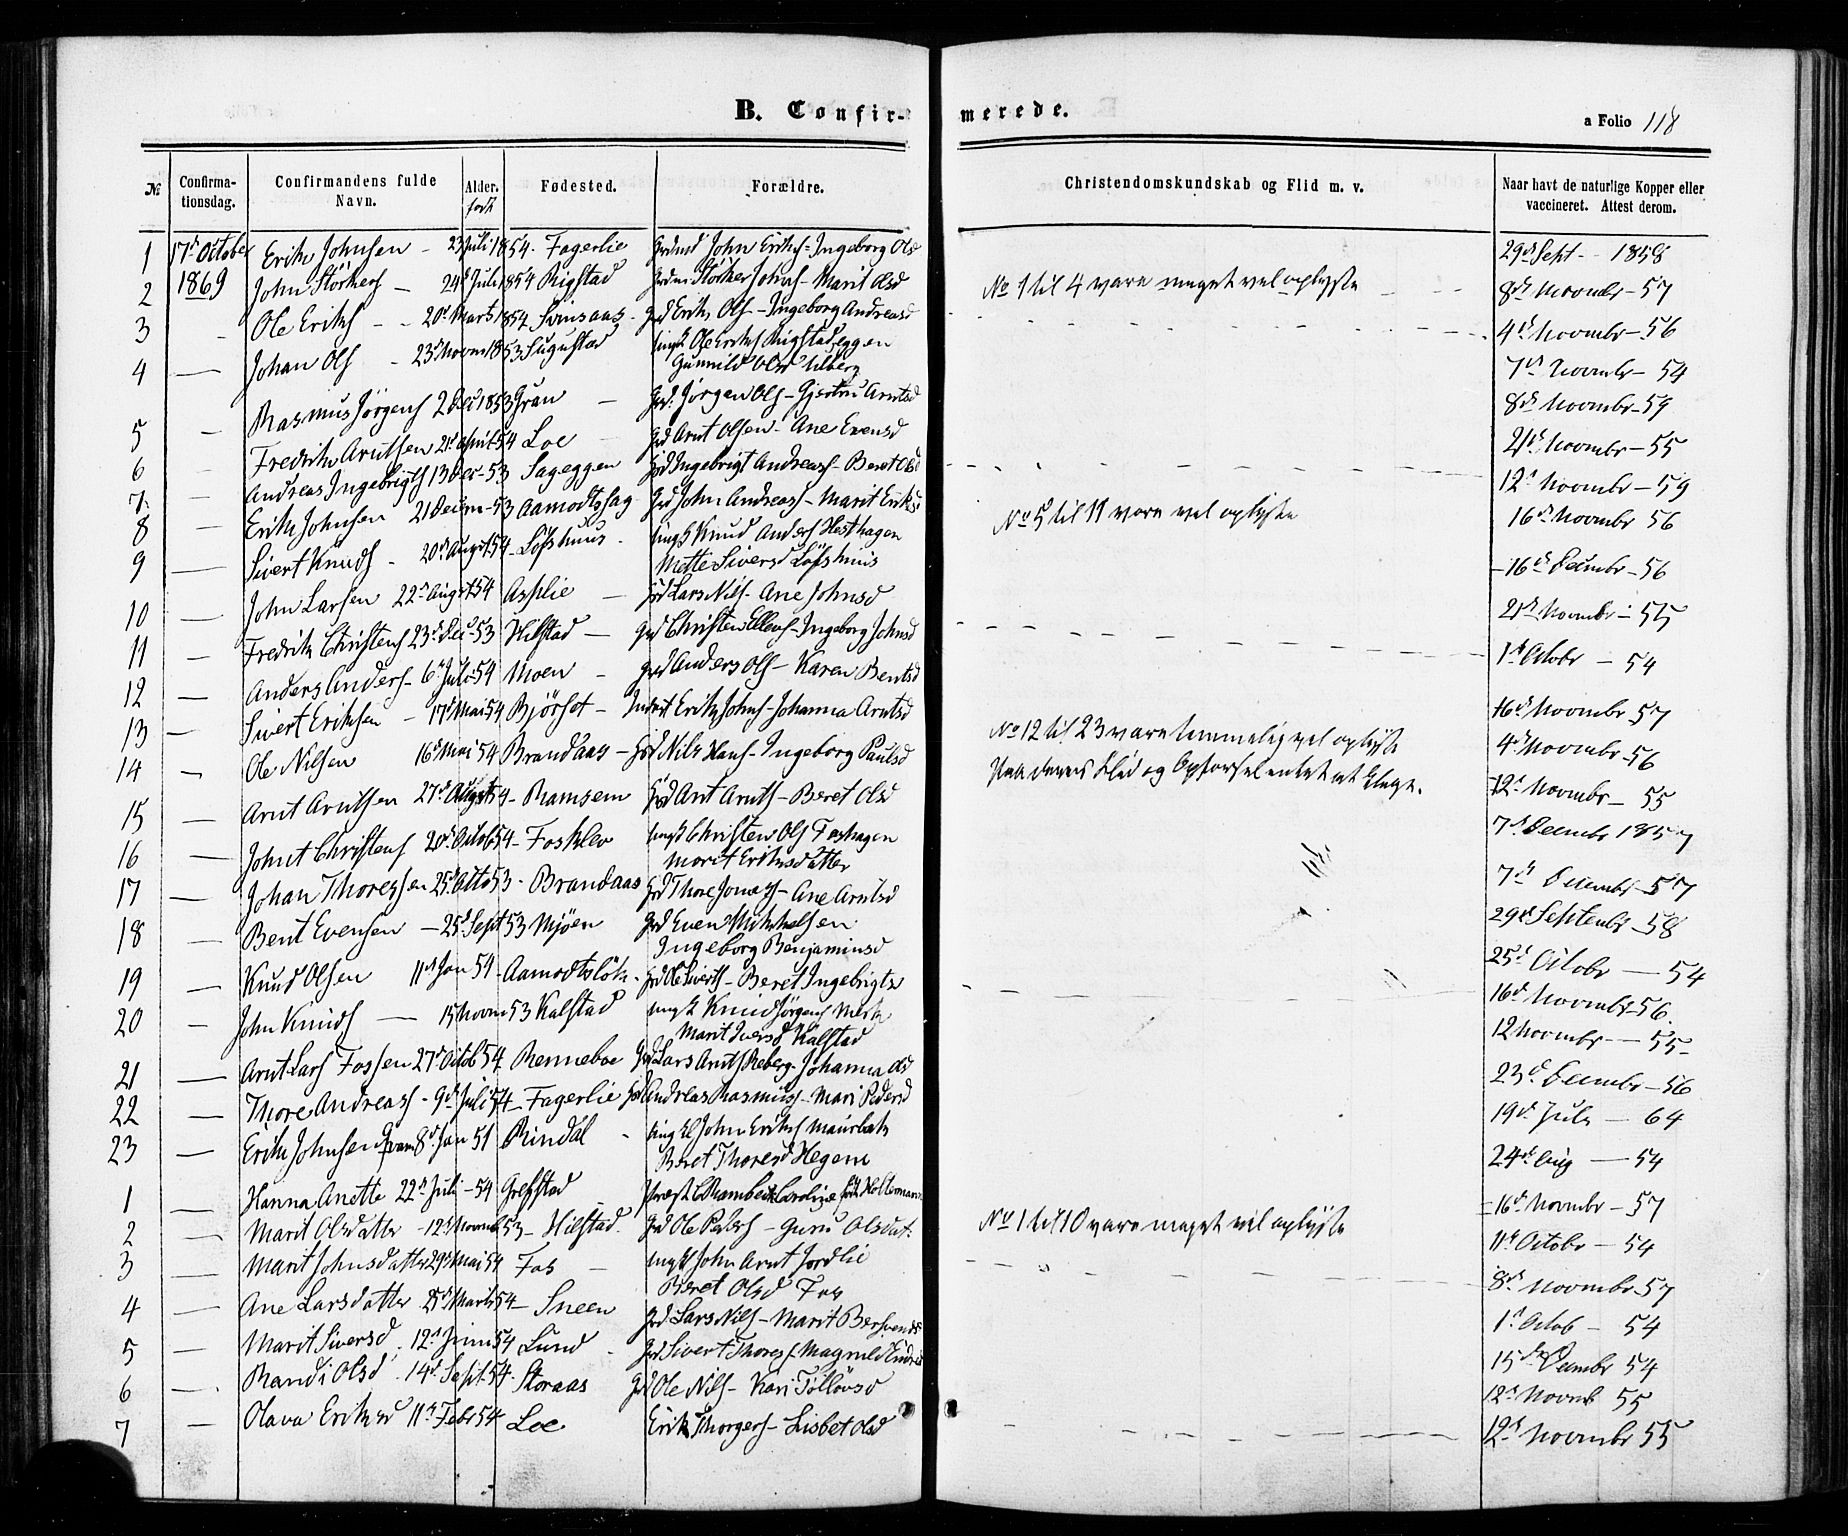 B. Confir-merede.
a Folio 118
№ Confirma-tionsdag. Confirmandens fulde Navn. Alder. født Fødested. Forældre. Christendomskundskab og Flid m. v. Naar havt de naturlige Kopper eller vaccineret. Attest derom.
1 17d October Erik Johnsen - 23 Juli 1854. Fagerlie John Eriks - Ingeborg Olsd 29d Sept - 1858
2 1869 John Störkers - 24d Juli 1854 Rigstad Störker Johns - Marit Olsd 8d Novembr - 57
No 1 til 4 vare meget vel oplyste
3 Ole Eriks - 20d Marts 1854 Svinsaas Grd Erik Ols - Ingeborg Andreasd 4d Novembr - 56
4 Johan Ols - 23d Novm 1853 Ungk Ole Eriks Rigstadeggen
Gunnild Olsd Ulberg 7d Novembr - 54
5 Rasmus Jörgens 2 Dec 1853 Gran Grd. Jörgen Ols - Gjertru Arntsd 8d Novembr - 59
6 Fredrik Arntsen 21d April 54 Loe Grd Arnt Olsen - Ane Evensd 21d Novembr - 55
7 Andreas Ingebrigts 13 Dec - 53 Sageggen Ingebrigt Andreas - Beret Olsd 12d Novembr - 59
8 Erik Johnsen 21 Decem - 53 Aamodtssag Grd John Andreas - Marit Eriks 16d Novembr 56
No 5 til 11 vare vel oplyste
9 Sivert Knuds - 20d August 54 - Löfshuus Ungk Knud Anders Hesthagen
Mette Siversd Löfshuus - 16d Decembr - 56
10 John Larsen 22d August 54 Asplie Grd Lars Nils - Ane Johnsd 21d Novembr - 55
11 Fredrik Christens 23d Dec - 53 Hilstad - Grd Christen Ellevs - Ingeborg Johnsd 1d Octobr - 54
12 Anders Anders - 6d Juli 54 Moen Grd Anders Ols - Karen Bentsd 16d Novembr 57
13 Sivert Eriksen - 17d Mai 54 Bjørset - Erik Johns - Johanna Arntsd 4d Novembr - 56
No 12 til 23 vare temmelig vel oplyste
14 Ole Nilsen 16d Mai 54 Brandaas - Grd Nils Hans - Ingeborg Paulsd 12d Novembr - 55
Paa deres Flid og Opførsel intet at klage.
15 Arnt Arntsen 27d August 54 - Ramsem Grd Arnt Arnts - Beret Olsd 7d Decembr 1857
16 Johnt Christens 20d Octob 54 - Fosklev Ungk Christen Ols Foshagen
Marit Eriksdatter 7d Decembr - 57
17 Johan Thoressen 25d Octo 53 - Brandaas Grd Thore Jonass - Ane Arntsd 29d Septembr - 58
18 Bent Evensen - 25d Sept 53 Mjöen Grd Even Mikkelsen
Ingeborg Benjaminsd 25d Octobr - 54
19 Knud Olsen 11d Jan 54 - Aamodtslök - Grd Ole Siverts - Beret Ingebrigts 16d Novembr - 56.
20 John Knuds - 15 Novm 53 Kalstad Ungk Knud Jörgens
Marit Iversd Kalstad 12 Novembr - 55 -
21 Arnt Lars Fossen 27d Octob 54 Renneboe Grd Lars Arnts - Johanna Olsd 23d Decembr - 56
22 Thore Andreass - 9d Juli 54 - Fagerlie Andreas Rasmuss - Mari Pedersd 19d Juli - 64
23 Erik Johnsen 8d Jan 54 Rindal Ungkl John Eriks
Beret Thoresd Hegem 24d Aug - 54
1 Hanna Anette 22d Juli - 54 Grefstad Caroline - 16d Novembr - 57
2 Marit Olsdatter - 12d Novemb 53 - Hilstad. Grd Ole Peders - Guru Olsdat: 11d Octobr - 54
No 1 til 10 vare meget vel oplyste
3 Marit Johnsdatter 29d Mai 54 Fos Ungkl John Arnt Jordlie
Beret Olsd Fos 8d Novembr 57
4 Ane Larsdatter 25d Marts 54 - Sneen Grd Lars Nils - Marit Bersvends 1d Octob - 54
5 Marit Siversd. 12d Juni 54 Lund Grd Sivert Thores - Magnild Endres 15d Decembr 54
6 Randi Olsd. 14d Sept. 54. Storaas Grd Ole Nils - Kari Tollövsd 12d Novemb 55
7 Olava Eriksd 11d Febr 54 Loe Erik Thorgers - Lisbet Olsd 12d Novembr 55